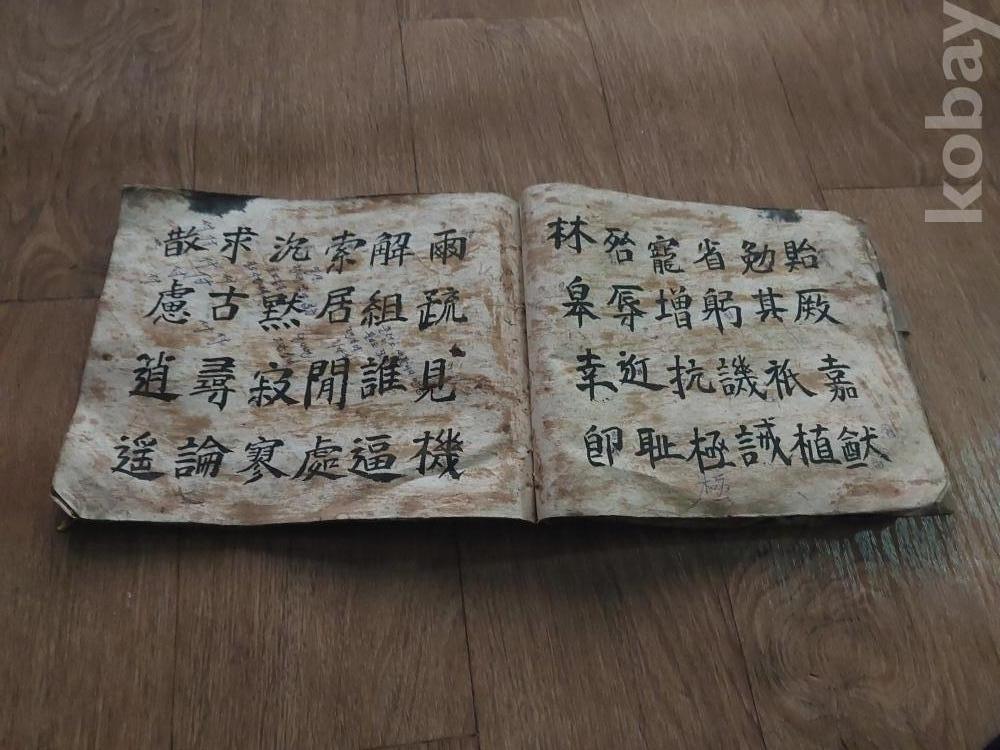 貽厥嘉猷
勉其祗植
省躬譏誡
寵增抗極
殆辱近耻
林皋幸卽
兩疏見機
解組誰逼
索居閒處
沉默寂寥
求古尋論
散慮逍遥
極
kobay